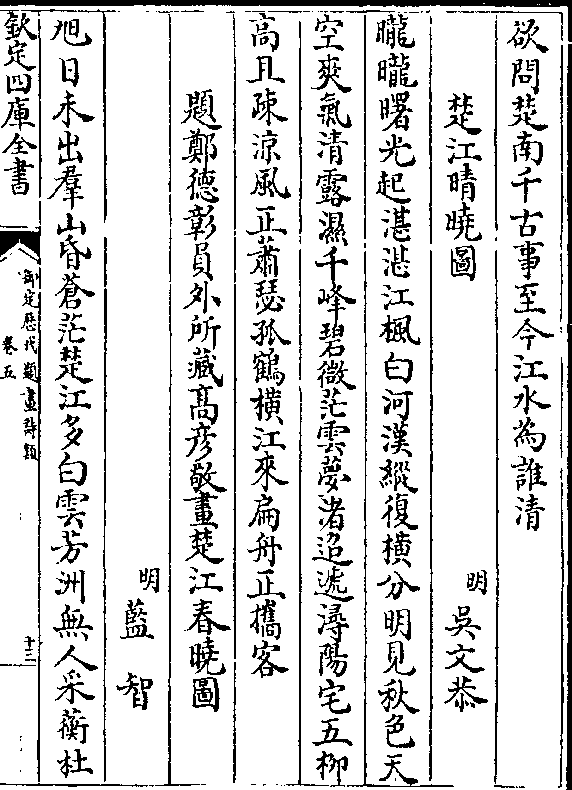 欲問楚南千古事至今江水為誰清
楚江晴曉圖
明 吳文恭
曨曨曙光起湛湛江楓白河漢縱復橫分明見秋色天
空爽氣清露濕千峰碧微茫雲夢渚迢遞潯陽宅五柳
高且疎涼風正蕭瑟孤鶴橫江來扁舟正攜客
題鄭德彰員外所藏髙彦敬畫楚江春曉圖
明 藍智
旭日未出羣山昏蒼茫楚江多白雲芳洲無人采蘅杜
欽定四庫全書
御定歷代題畫詩類
卷五
十三